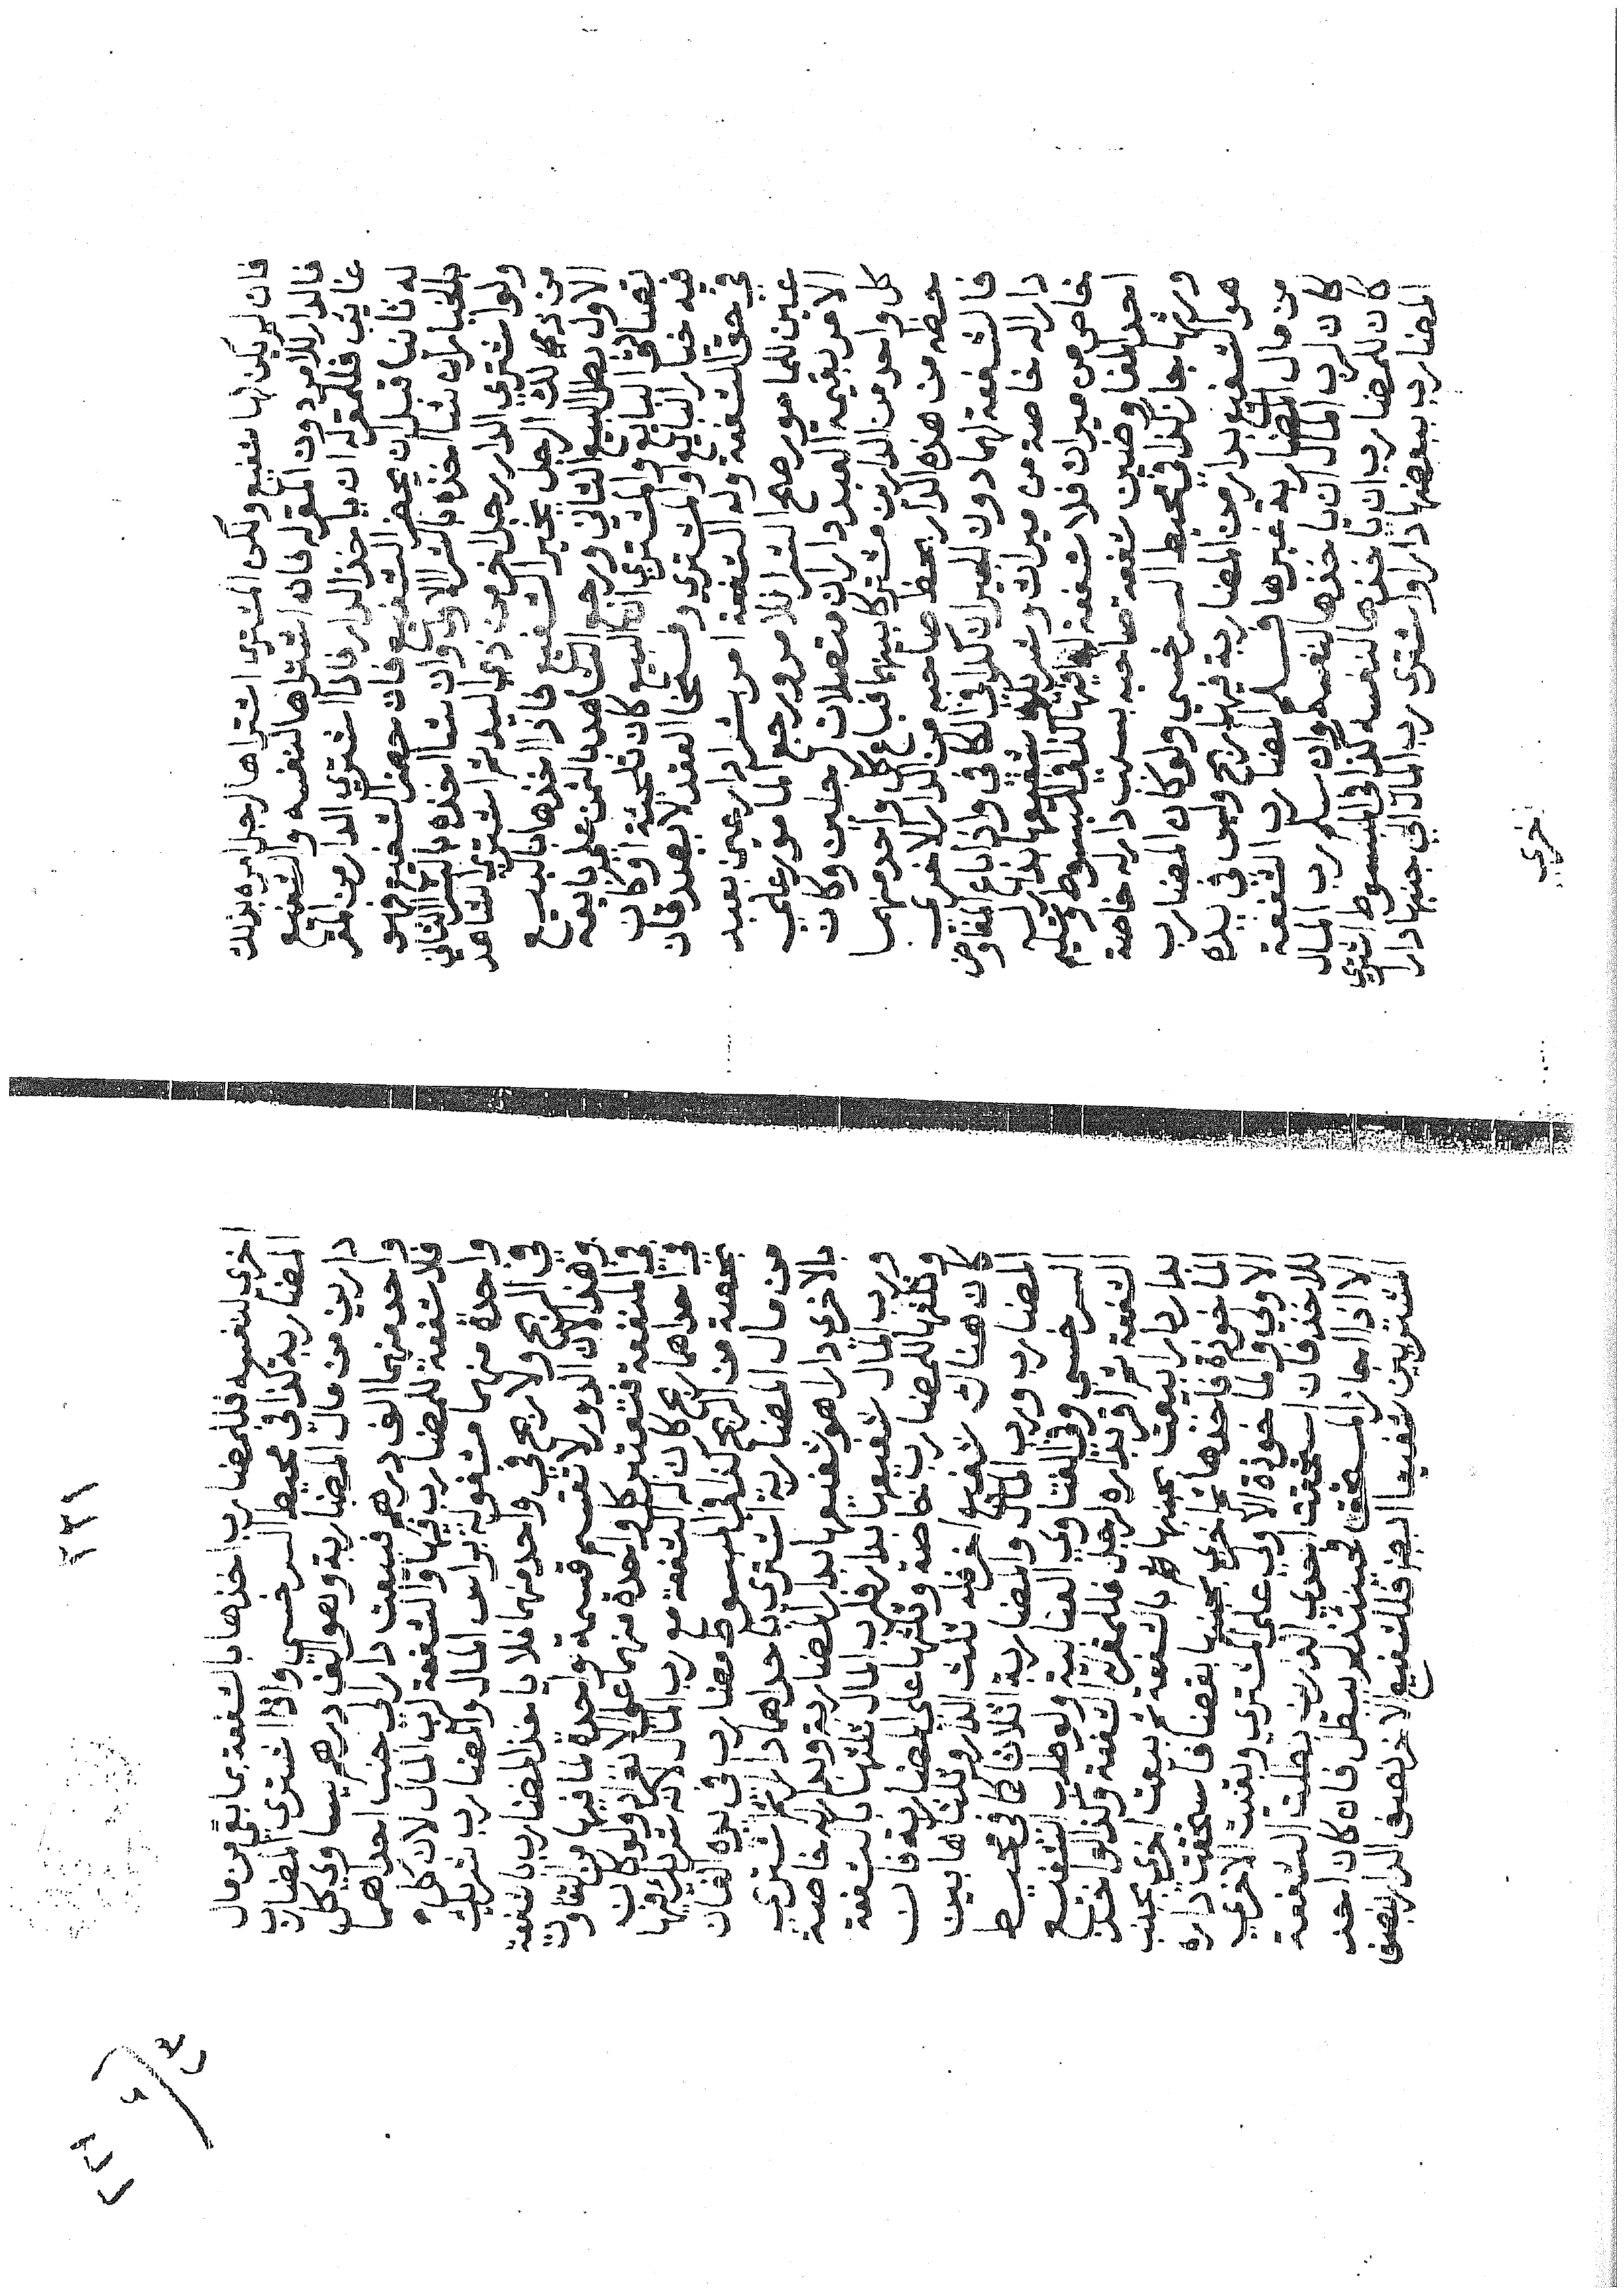 فان لم يكن لها شفيع ولكن المشتري اشتراها لرجل امره بذلك
فالدار للآمر دون المقر له فان اشتراها لنفسه والشفيع
غايب فللمقر له ان ياخذ الدار فاذا اشتري الدار من المقر
له ثانيا قبل ان يحضر الشفيع فان حضر الشفيع فهو
بالخيار ان شا اخذه بالشرا الاول وان شا اخذه بالشرا الثاني
ولو اشتري الدار رجل اخر من ذي اليد ثم اشتري الشاهد
من ذلك الرجل يخير الشفيع فاذا اخذها بالبيع
الاول بطل البيع الثاني ورجع الشاهد بالثمن علي بايعه
تصادق البايع والمشتري ان البيع كان تلجئة او كان
فيه خيار البايع او المشتري وفسخا العقد لا يصدقان
في حق الشفعة وله الشفعة امر بشرا دار عين بعبد
عين للمامور صح الشرا للامر ورجع المامور علي
الامر بقيمة العبد داران متصلان لرجلين وكان
كل واحد من الدارين مشتركا بينهما فباع كل واحد منهما
حظه من هذه الدار بحظ صاحبه من الدار الاخري
فالشفعة لهما دون الجيران كذا في الكافي واذا باع المفاوض
دارا له خاصة من ميراث وشريكه شفيعها بدار له
خاص من ميراث فلا شفعة له فيها كذا في المبسوط وتسليم
احد المفاوضين شفعة صاحبه بسبب دار له خاصة
ورثها جائز كذا في محيط السرخسي ولو كان المضارب
هو الشفيع بدار من المضاربة فيها ربح وليس في يده
من مال المضاربة غيرها فسلم المضارب الشفعة
كان لرب المال ان ياخذها لنفسه وان سلم رب المال
كان للمضارب ان ياخذها لنفسه كذا في المبسوط اشتري
المضارب ببعضها دارا واشتري رب المال الي جنبها دارا
اخري
٢٣٩
اخري لنفسه فللمضارب اخذها بالشفعة بما بقي من مال
المضاربة كذا في محيط السرخسي واذا اشتري المضارب
دارين من مال المضاربة وهو الف درهم يساوي كل
واحد منهما الف درهم فبيعت دار الي جنب احداهما
فلا شفعة للمضارب فيها والشفعة لرب المال لان كل
واحدة منهما مشغولة براس المال والمضارب شريك
في الربح ولا ربح في واحد منهما فلا ياخذ المضارب بالشفعة
وهذا لان الدور لا تقسم قسمة واحدة لما فيها من التفاوت
في المنفعة فتعتبر كل واحدة منهما علي الانفراد ولو كان
في احداهما ربح كان له الشفعة مع رب المال لانه شريك فيها
بحصة من الربح كذا في المبسوط مضارب في يده الفان
من مال المضاربة اشتري باحداهما دارا ثم اشتري
بالاخري دارا هو شفيعها بدار المضاربة وبدار له خاصة
ورب المال شفيعها بدار فلرب المال ثلثها بالشفعة
وثلثها للمضارب خاصة وثلثها علي المضاربة فان
كان هناك شفيع اخر فله ثلث الدار وثلثاها بين
المضارب ورب المال والمضاربة اثلاثا كما في محيط
السرخسي وفي الفتاوي العتابية ولو طلب الشفيع
الشفعة ثم اقر بداره لرجل فللمقر له الشفعة وكذا لو اخذ
بدار دارا بيعت بجنبها بالشفعة ثم بيعت اخري بجنب
الماخوذة فاخذها ثم اخري بجنبها بقضا فاستحقت داره
الاولي والماخوذة الاولي علي المشتري وبقيت الاخري
للاخذ فان استحقت احدي الدارين بطلت الشفعة
الا اذا اجاز المستحق فحينئذ لم يبطل فان كان احد
المشتريين شفيعا اجبر فللشفيع الاخر نصف الدار بنصف
٢٣٩